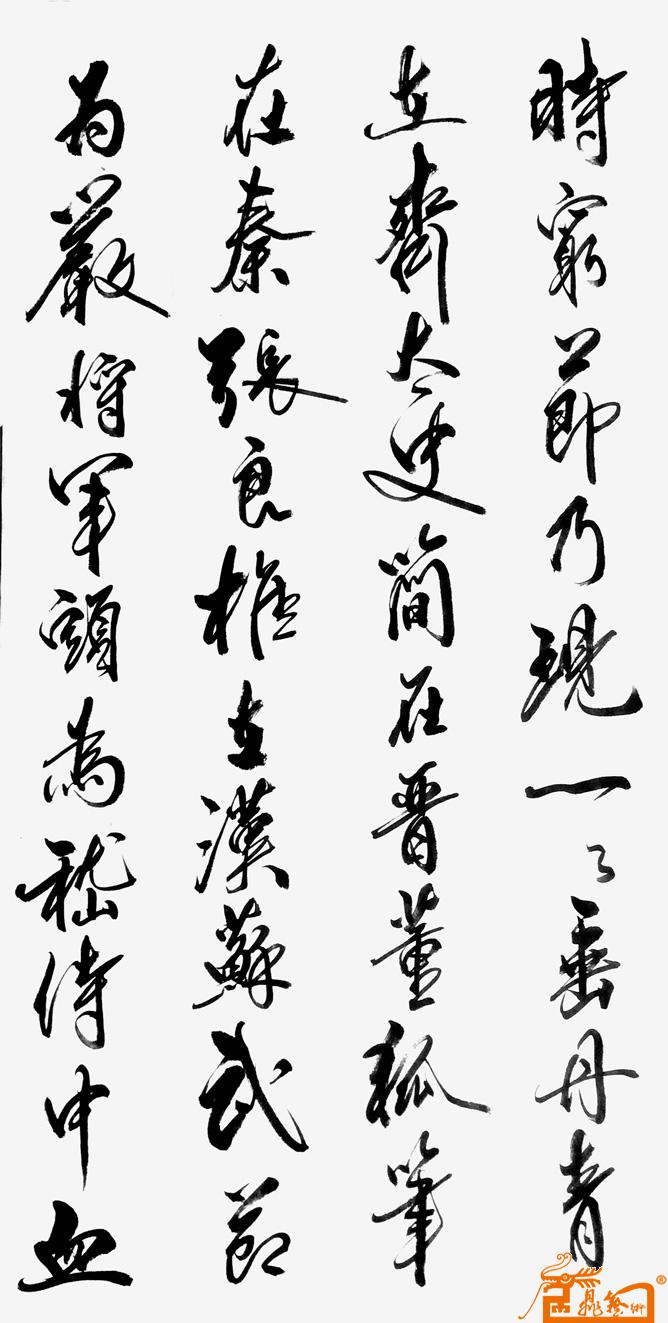 時窮節乃現一々垂丹青
在齊太史簡在晋董狐筆
在秦張良椎在漢蘇武節
为嚴將軍頭為嵇侍中血
鼎藝術
®